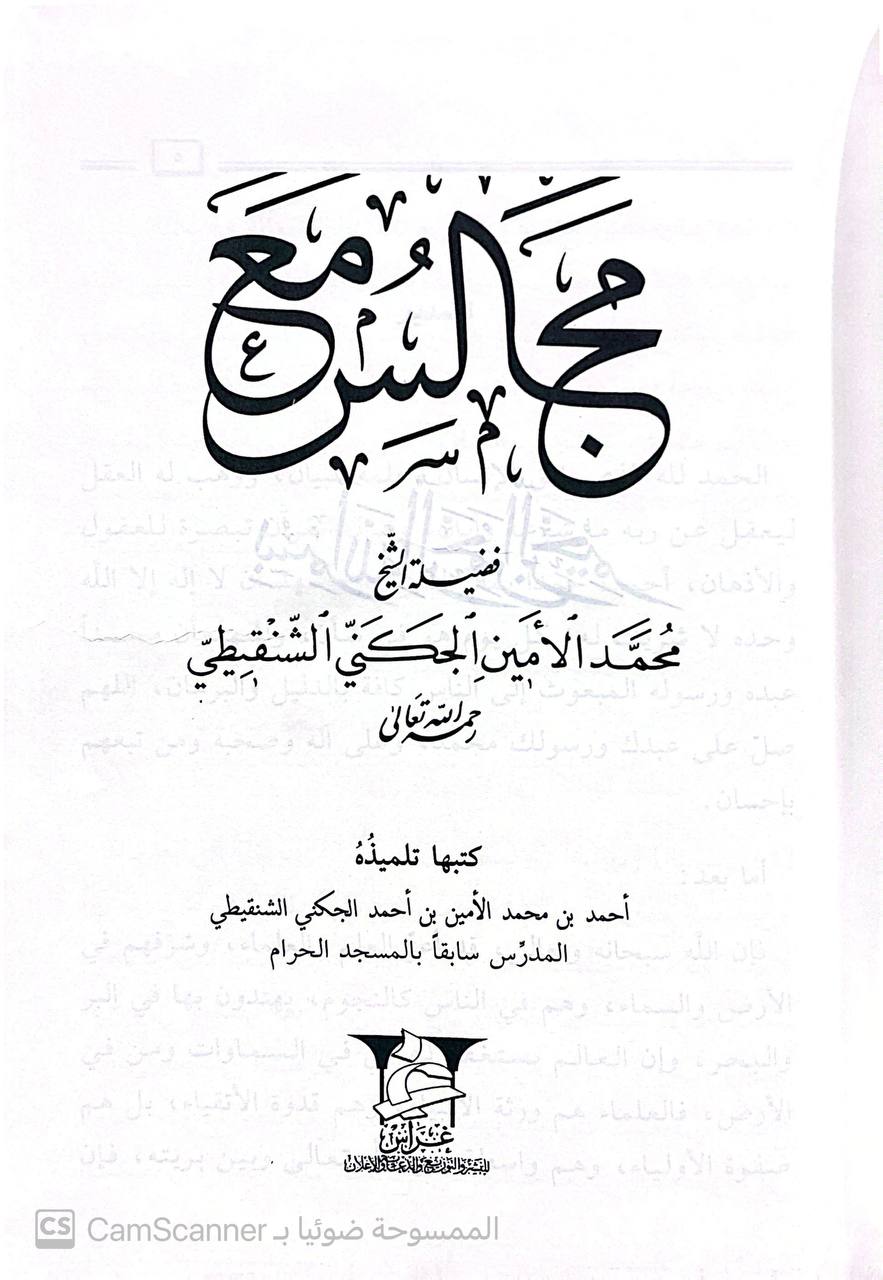 مجالس مع
فضيلة الشيخ
محمَّد الأمين الجكنيّ الشّنقيطيّ
رحمه الله تعالى
كتبها تلميذُهُ
أحمد بن محمد الأمين بن أحمد الجكني الشنقيطي
المدرِّس سابقاً بالمسجد الحرام
غراس
للنشر والتوزيع والدعاية والإعلان
CS الممسوحة ضوئيا بـ CamScanner